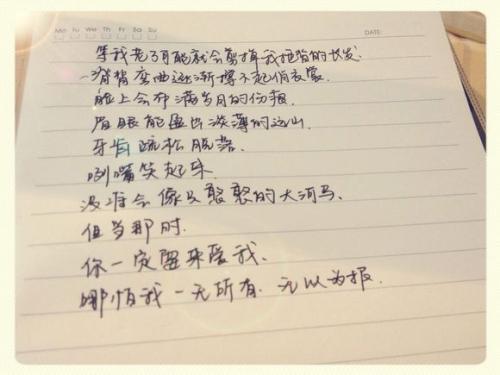 Mo Tu We Th Fr Sa Su
DATE:
等我老了可能就会剪掉我拖背的长发.
脊背弯曲逐渐撑不起俏衣裳.
脸上会布满岁月的伤痕.
眉眼能画出淡薄的远山.
牙齿疏松脱落.
咧嘴笑起来.
没准会像只憨憨的大河马.
但当那时.
你一定要来爱我.
哪怕我一无所有.无以为报.